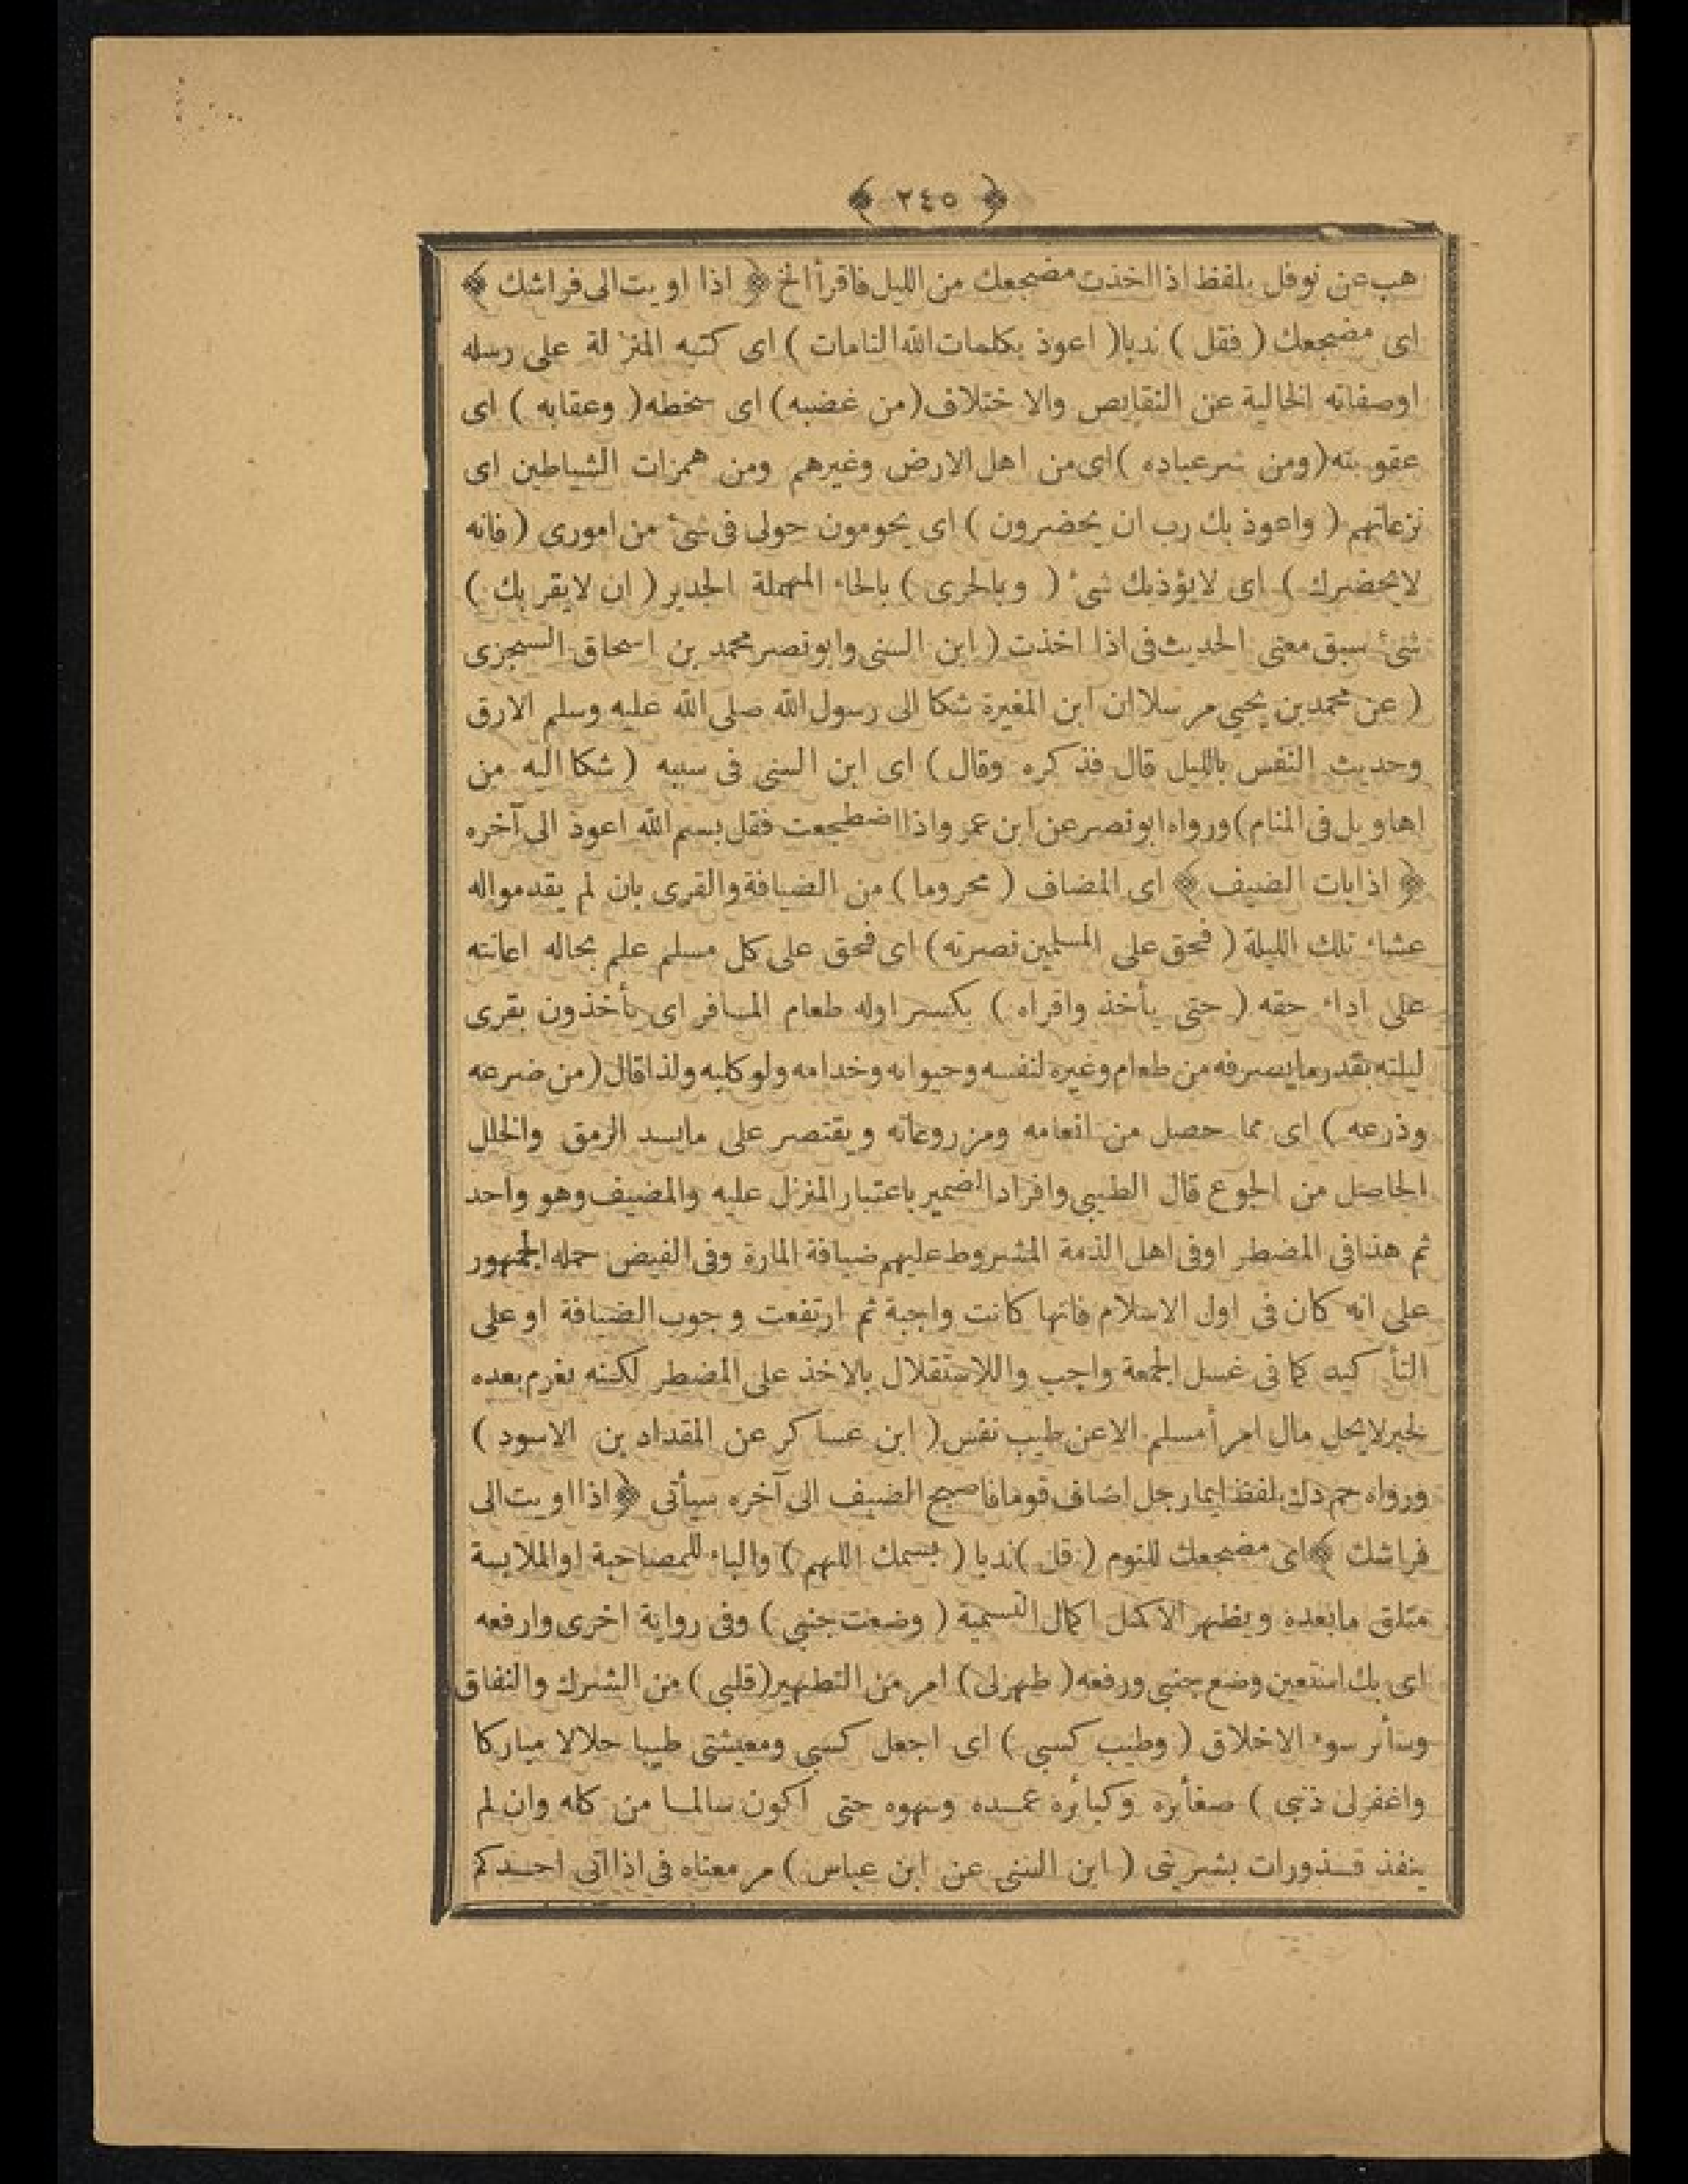 ﴿ ٢٤٥ ﴾
هب عن نوفل بلفظ اذا اخذت مضجعك من الليل فاقرأ الخ ﴿ اذا اويت الى فراشك ﴾
اى مضجعك ( فقل ) ندبا ( اعوذ بكلمات الله التامات ) اى كتبه المنزلة على رسله
اوصفاته الخالية عن النقايص والاختلاف ( من غضبه ) اى سخطه ( وعقابه ) اى
عقوبته ( ومن شر عباده ) اى من اهل الارض وغيرهم ومن همزات الشياطين اى
نزعاتهم ( واعوذ بك رب ان يحضرون ) اى يحومون حولى فى شئ من امورى ( فانه
لايحضرك ) اى لايؤذيك شئ ( وبالحرى ) بالحاء المهملة الجدير ( ان لايقربك )
شئ سبق معنى الحديث فى اذا اخذت ( ابن السنى وابونصر محمد بن اسحاق السجزى
( عن محمد بن يحيى مرسلا ان ابن المغيرة شكا الى رسول الله صلى الله عليه وسلم الارق
وحديث النفس بالليل قال فذكره وقال ) اى ابن السنى فى سببه ( شكا اليه من
اهاويل فى المنام ) ورواه ابونصر عن ابن عمر واذا اضطجعت فقل بسم الله اعوذ الى آخره
﴿ اذابات الضيف ﴾ اى المضاف ( محروما ) من الضيافة والقرى بان لم يقدمواله
عشاء تلك الليلة ( فحق على المسلمين نصرته ) اى فحق على كل مسلم علم بحاله اعانته
على اداء حقه ( حتى يأخذ واقراه ) بكسر اوله طعام المسافر اى يأخذون بقرى
ليلته بقدر مايصرفه من طعام وغيره لنفسه وحيوانه وخدامه ولوكلبه ولذا قال ( من ضرعه
وذرعه ) اى مما حصل من انعامه ومزروعاته ويقتصر على مايسد الرمق والخلل
الحاصل من الجوع قال الطيبى وافراد الضمير باعتبار المنزل عليه والمضيف وهو واحد
ثم هذا فى المضطر اوفى اهل الذمة المشروط عليهم ضيافة المارة وفى الفيض حمله الجمهور
على انه كان فى اول الاسلام فانها كانت واجبة ثم ارتفعت وجوب الضيافة او على
التأكيد كما فى غسل الجمعة واجب واللاستقلال بالاخذ على المضطر لكنه يغرم بعده
لخبر لايحل مال امرأ مسلم الاعن طيب نفس ( ابن عساكر عن المقداد بن الاسود )
ورواه حم دك بلفظ ايما رجل اضاف قوما فاصبح الضيف الى آخره سيأتى ﴿ اذا اويت الى
فراشك ﴾ اى مضجعك للنوم ( قل ) ندبا ( بسمك اللهم ) والباء للمصاحبة اوالملابسة
متلق مابعده ويظهر الاكمل اكمال التسمية ( وضعت جنبى ) وفى رواية اخرى وارفعه
اى بك استعين وضع جنبى ورفعه ( طهرلى ) امر من التطهير ( قلبى ) من الشرك والنفاق
وسأئر سوء الاخلاق ( وطيب كسبى ) اى اجعل كسبى ومعيشتى طيبا حلالا مباركا
واغفرلى ذنبى ) صغأئره وكبأئره عمده وسهوه حتى اكون سالما من كله وان لم
ينفذ قذورات بشريتى ( ابن السنى عن ابن عباس ) مر معناه فى اذا اتى احدكم